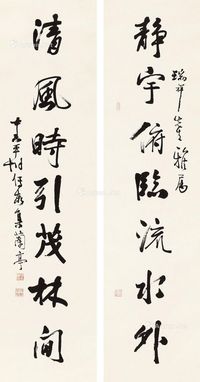 瑞卿先生雅属
静宇俯临流水外
清風時引茂林间
集蘭亭